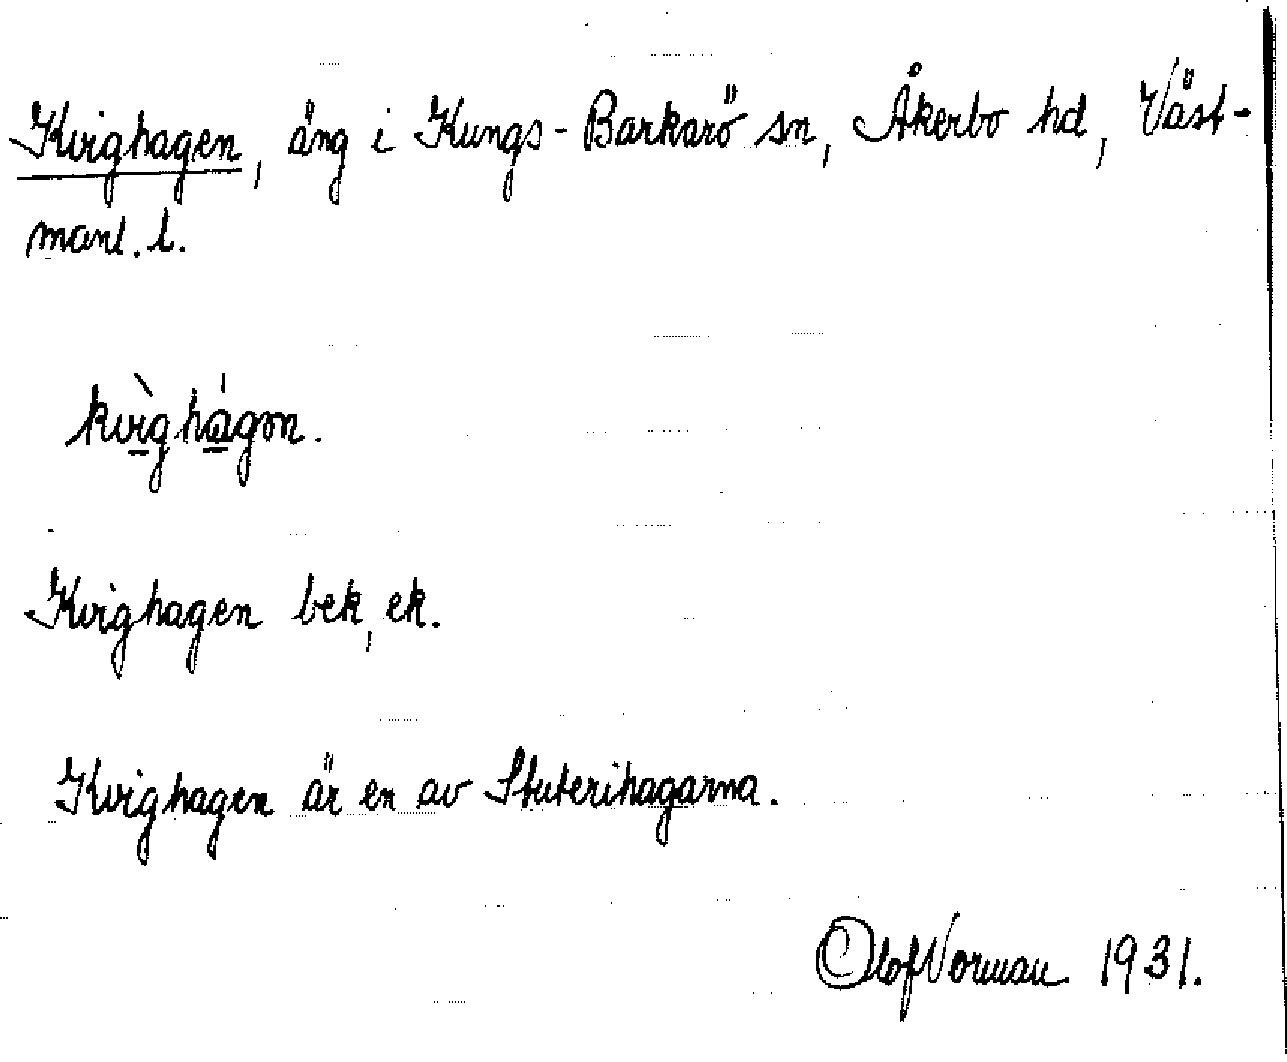 Kvighagen, äng i Kungs-Barkarö sn, Åkerbo hd, Väst-
manl. l.
kvìghágøn.
Kvighagen bek, ek.
Kvighagen är en av Stuterihagarna.
Olof Norman 1931.